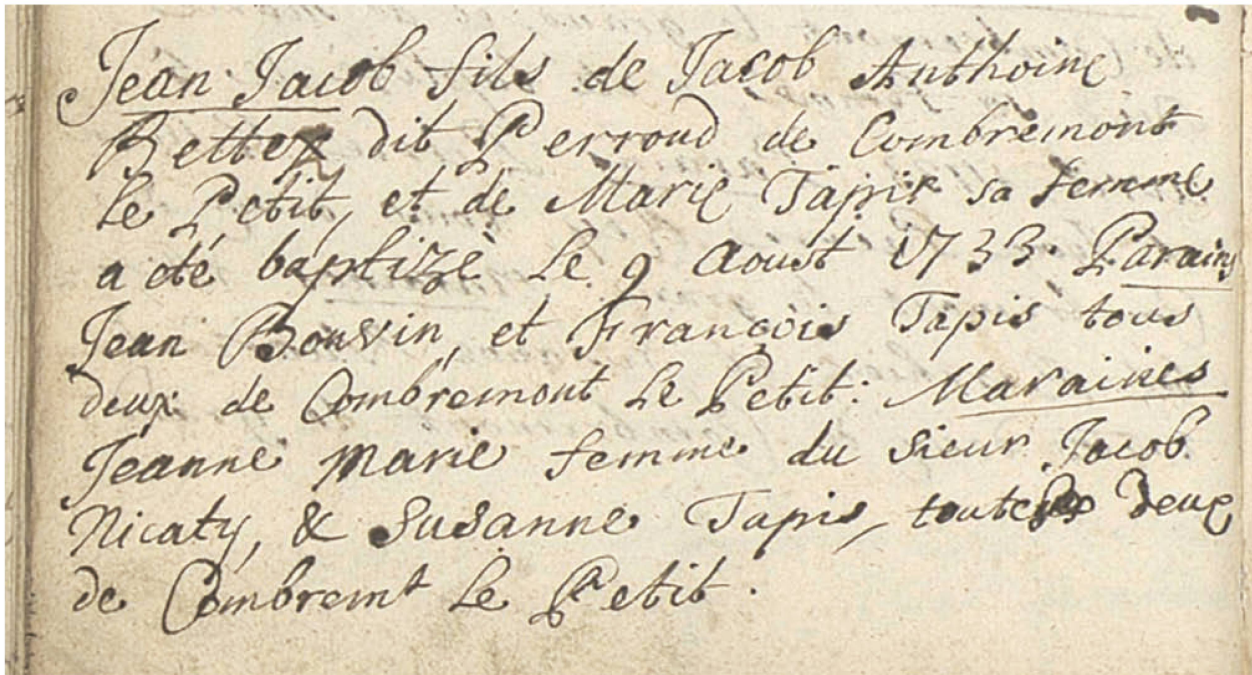 Jean Jacob fils de Jacob Anthoine
Bettex dit Perroud de Combremont
le Petit, et de Marie Tapis sa femme
a été baptizé le 9 Aoust 1733. Parains
Jean Bouvin, et François Tapis tous
deux de Combremont le Petit: Maraines
Jeanne Marie femme du Sieur Jacob
Nicaty, & Susanne Tapis, toutes deux
de Combremt le Petit.